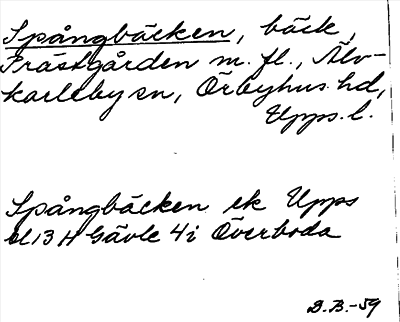 Spångbäcken, bäck,
Prästgården m. fl., Älv-
karleby sn, Örbyhus hd,
Upps. l.
Spångbäcken ek Upps
bl 13 H Gävle 4 i Överboda
D.B.-59